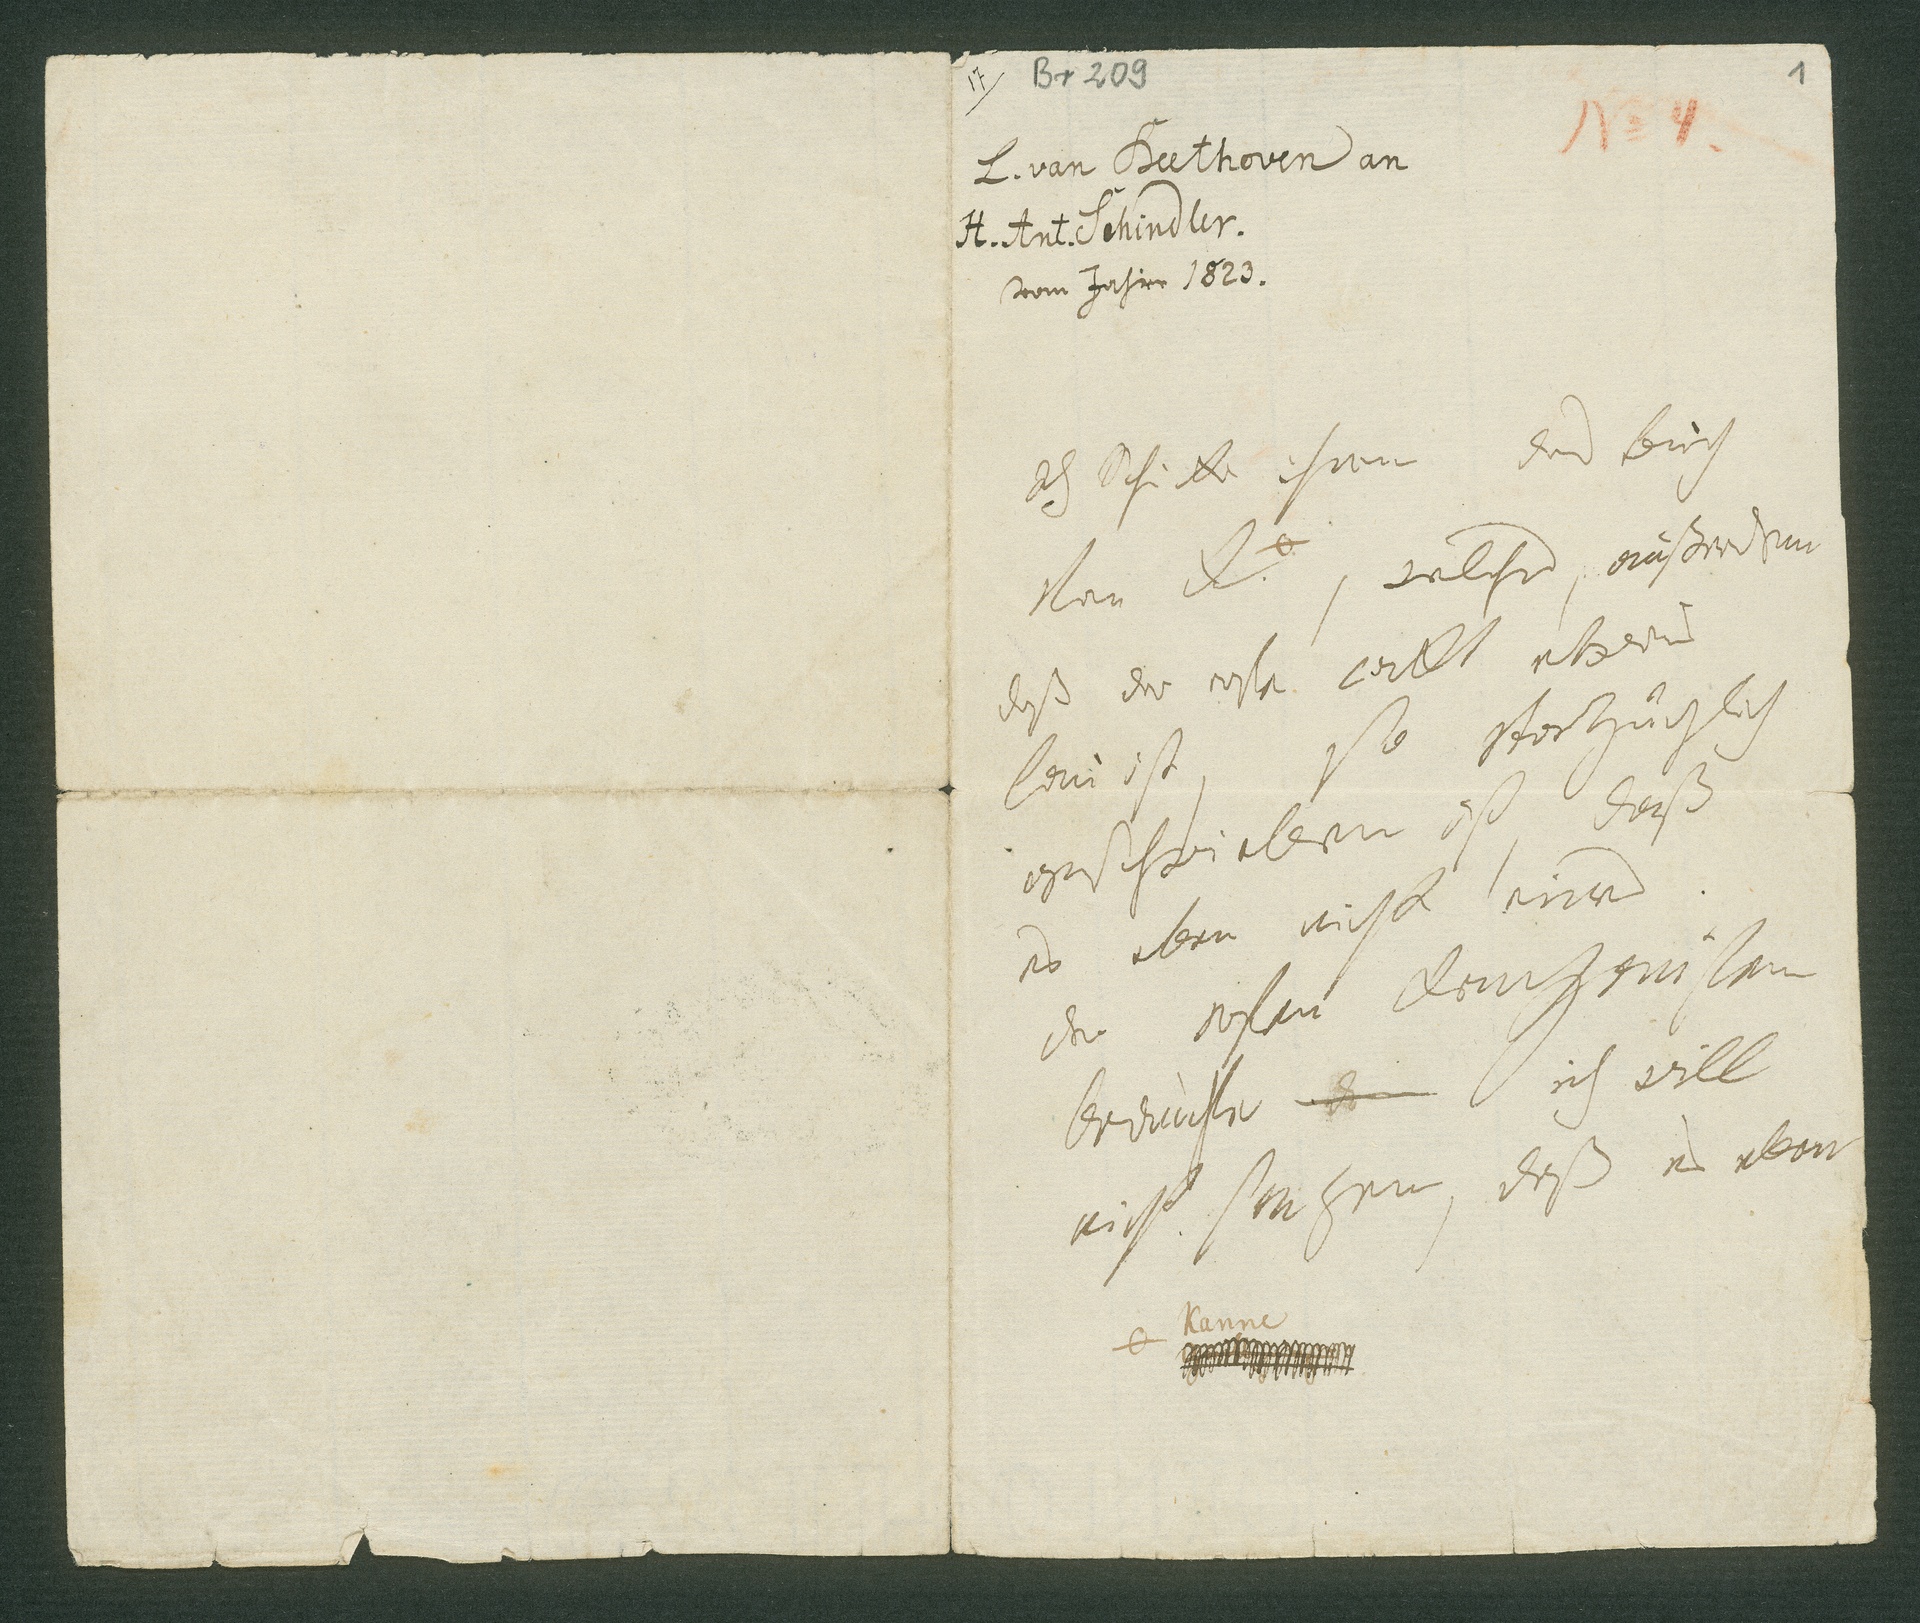 17/ Br 209 1
No 4.
L. van Beethoven an
H. Ant. Schindler.
vom Jahre 1823.
Ich Schicke ihnen das buch
von K. , welches, außerdem
daß der erste ackt etwas
lau ist, so vorzüglich
geschrieben ist, daß
es eben nicht eines
der ersten Componisten
bedürfte ich will
nicht sagen, daß es eben
Kanne